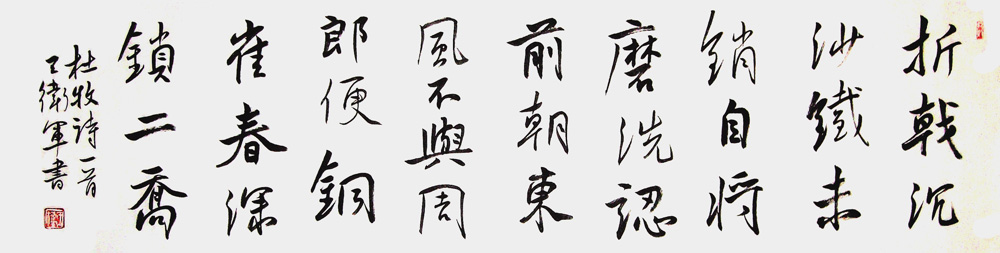 折戟沉
沙鐵未
銷自將
磨洗認
前朝東
風不與周
郎便銅
雀春深
鎖二喬
杜牧詩一首
衛軍書